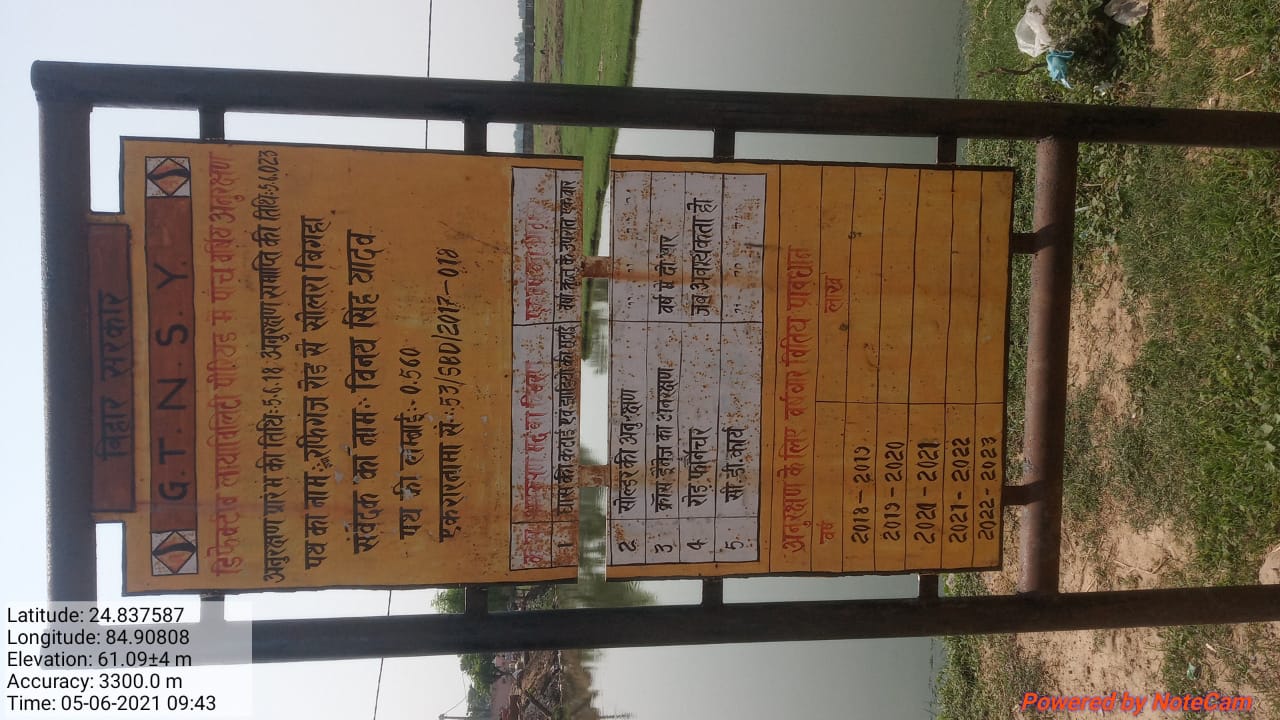 बिहार सरकार
G.T.N.S.Y.
डिफेक्टिव लायबिलिटी पीरियड में पांच वर्षीय अनुरक्षण
अनुरक्षण प्रारंभ की तिथि:5.6.18 अनुरक्षण समाप्ति की तिथि:5.6.023
पथ का नाम: रफिगंज रोड से सोलरा बिगहा
संवेदक का नाम: विनय सिंह यादव
पथ की लम्बाई:- 0.560
एकरारनामा सं:-53/SBD/2017-018
घास की कटाई एवं झाड़ियों की छटाई
2. सोल्डर की अनुरक्षण
3 क्रॉस ड्रेनेज का अनुरक्षण वर्ष में दो बार
4 रोड फर्निचर जब आवश्यकता हो
5. सी.डी. कार्य
अनुरक्षण के लिए वर्षवार वित्तिय प्रावधान
वर्ष लाख
2018-2019
2019-2020
2020-2021
2021-2022
2022-2023
Latitude: 24.837587
Longitude: 84.90808
Elevation: 61.09±4 m
Accuracy: 3300.0 m
Time: 05-06-2021 09:43
Powered by NoteCam